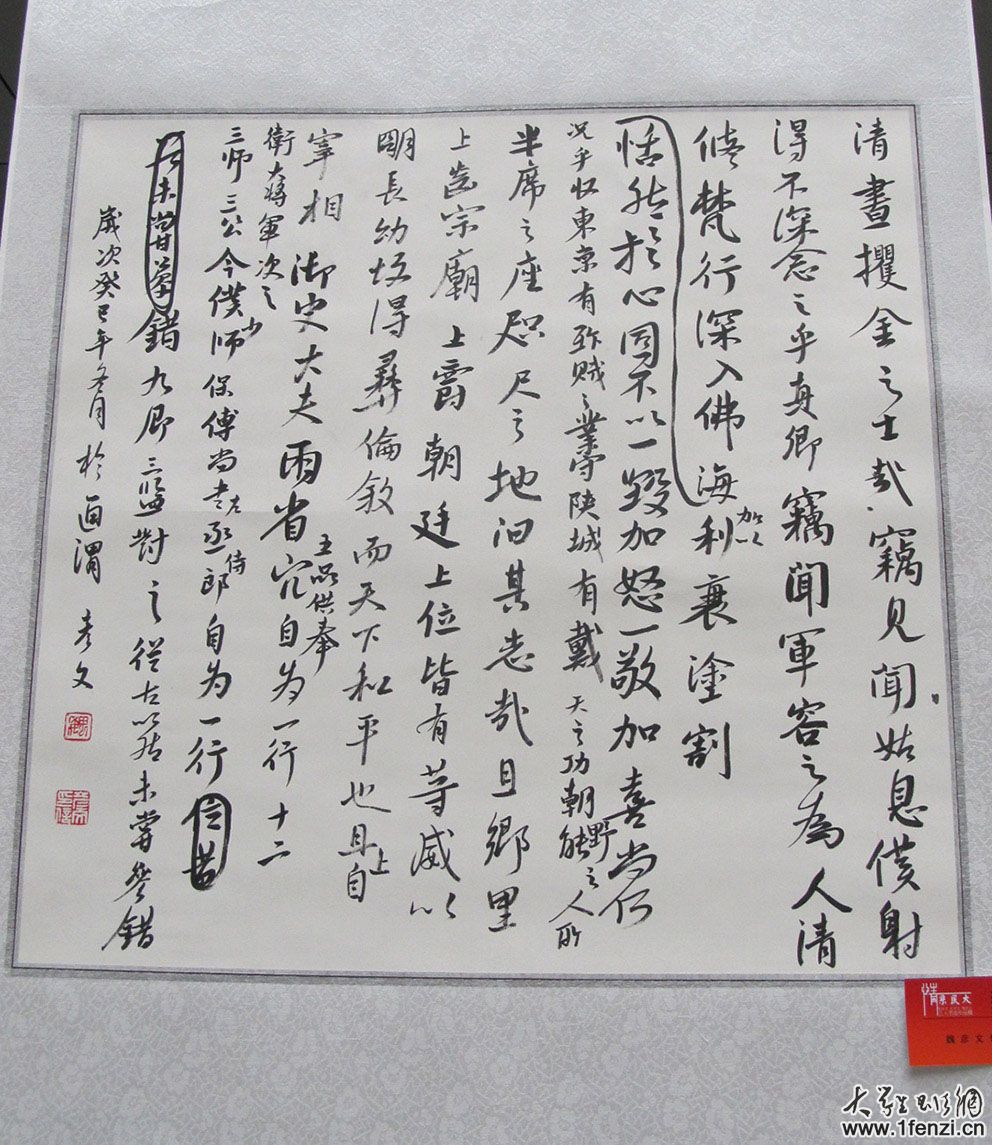 清晝攫金之士哉竊見聞姑息僕射
得不深念之乎真卿竊聞軍容之為人清
修梵行深入佛海利衰塗割
加以
恬然於心固不以一毀加怒一敬加喜尚何
況乎收東京有殄賊之業守陝城有戴天之功朝野之人所
半席之座咫尺之地汩其志哉且鄉里
上齒宗廟上爵朝廷上位皆有等威以
明長幼故得彝倫敘而天下和平也且上自
宰相御史大夫兩省
自為一行十二
供奉
衛大將軍次之
三師三公令僕少師保傅尚書左丞侍郎自為一行
古未嘗參錯九卿三監對之從古以然未嘗參錯
歲次癸巳年冬月於
渭彥文
魏彦文
大学生书法網
www.1fenzi.cn